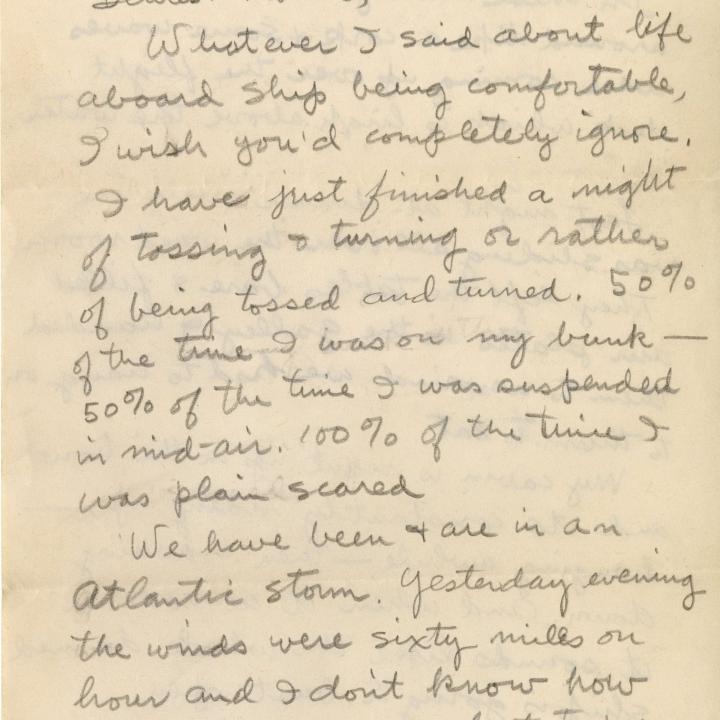 Whatever I said about life
aboard ship being comfortable,
I wish you'd completely ignore.
I have just finished a night
of tossing & turning or rather
of being tossed and turned. 50%
of the time I was on my bunk —
50% of the time I was suspended
in mid-air. 100% of the time I
was plain scared
We have been & are in an
Atlantic storm. Yesterday evening
the winds were sixty miles on
hour and I don't know how